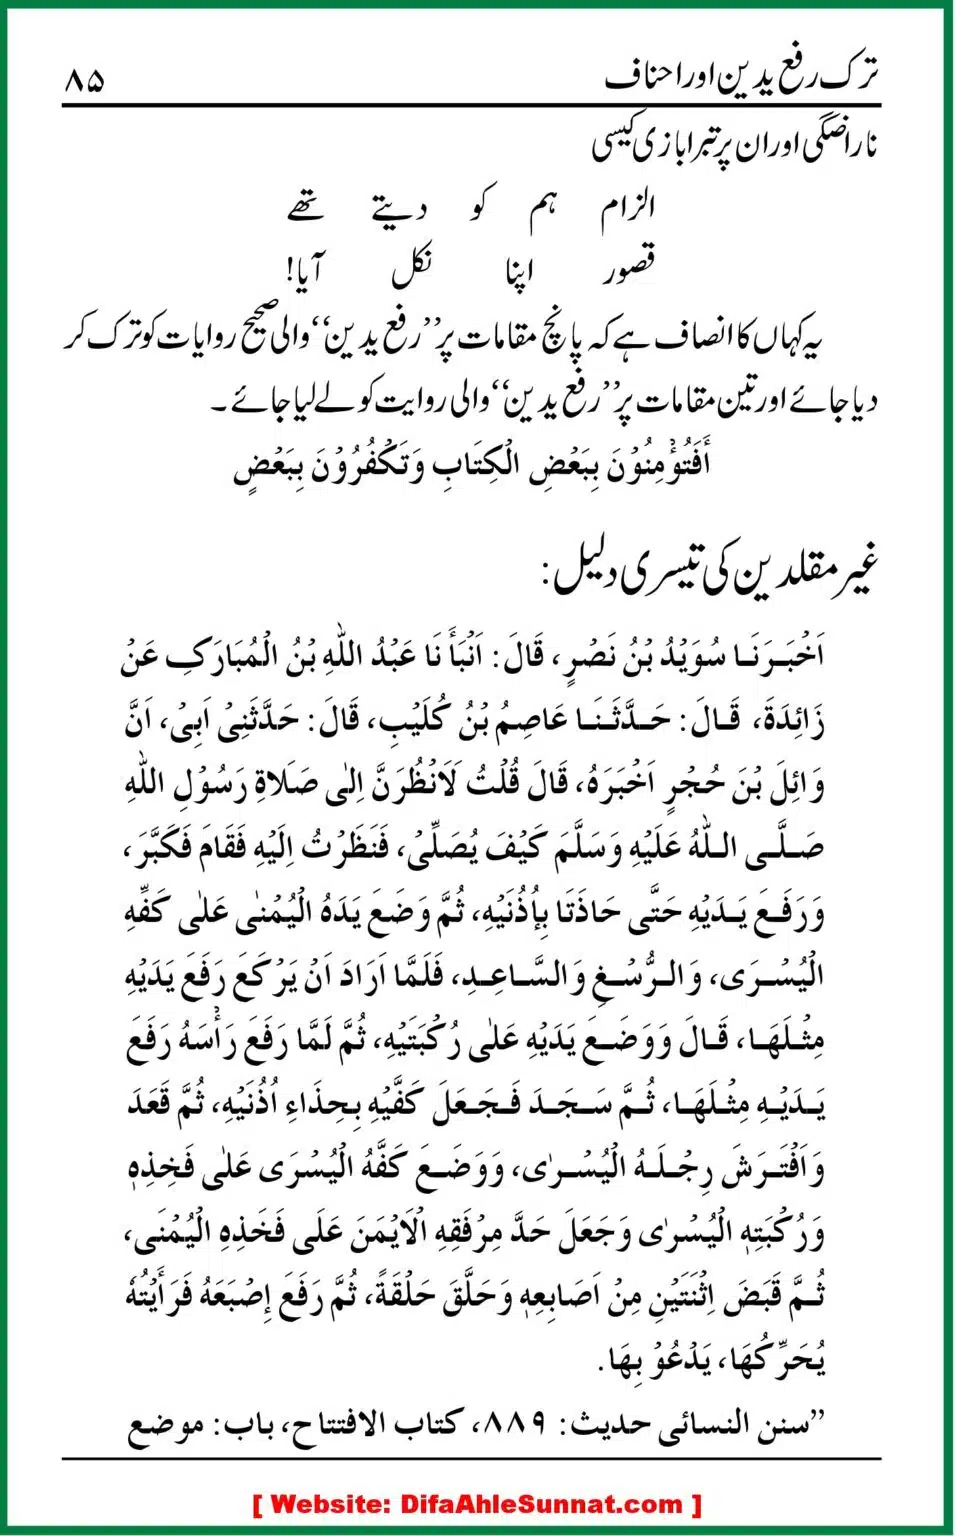 ترک رفع یدین اور احناف ۸۵
ناراضگی اور ان پر تبرا بازی کیسی
الزام ہم کو دیتے تھے
قصور اپنا نکل آیا!
یہ کہاں کا انصاف ہے کہ پانچ مقامات پر ’’رفع یدین‘‘ والی صحیح روایات کو ترک کر
دیا جائے اور تین مقامات پر ’’رفع یدین‘‘ والی روایت کو لے لیا جائے۔
أَفَتُؤْمِنُوْنَ بِبَعْضِ الْكِتَابِ وَتَكْفُرُوْنَ بِبَعْضٍ
غیر مقلدین کی تیسری دلیل:
اَخْبَرَنَا سُوَيْدُ بْنُ نَصْرٍ، قَالَ: اَنْبَأَنَا عَبْدُ اللّٰهِ بْنُ الْمُبَارَكِ عَنْ
زَائِدَةَ، قَالَ: حَدَّثَنَا عَاصِمُ بْنُ كُلَيْبٍ، قَالَ: حَدَّثَنِيْ اَبِيْ، اَنَّ
وَائِلَ بْنَ حُجْرٍ اَخْبَرَهُ، قَالَ قُلْتُ لَاَنْظُرَنَّ اِلٰى صَلَاةِ رَسُوْلِ اللّٰهِ
صَلَّى اللّٰهُ عَلَيْهِ وَسَلَّمَ كَيْفَ يُصَلِّيْ، فَنَظَرْتُ اِلَيْهِ فَقَامَ فَكَبَّرَ،
وَرَفَعَ يَدَيْهِ حَتَّى حَاذَتَا بِأُذُنَيْهِ، ثُمَّ وَضَعَ يَدَهُ الْيُمْنٰى عَلٰى كَفِّهِ
الْيُسْرَى، وَالرُّسْغِ وَالسَّاعِدِ، فَلَمَّا اَرَادَ اَنْ يَرْكَعَ رَفَعَ يَدَيْهِ
مِثْلَهَا، قَالَ وَوَضَعَ يَدَيْهِ عَلٰى رُكْبَتَيْهِ، ثُمَّ لَمَّا رَفَعَ رَأْسَهُ رَفَعَ
يَدَيْهِ مِثْلَهَا، ثُمَّ سَجَدَ فَجَعَلَ كَفَّيْهِ بِحِذَاءِ اُذُنَيْهِ، ثُمَّ قَعَدَ
وَافْتَرَشَ رِجْلَهُ الْيُسْرٰى، وَوَضَعَ كَفَّهُ الْيُسْرَى عَلٰى فَخِذِهٖ
وَرُكْبَتِهِ الْيُسْرٰى وَجَعَلَ حَدَّ مِرْفَقِهِ الْاَيْمَنَ عَلَى فَخَذِهِ الْيُمْنَى،
ثُمَّ قَبَضَ اِثْنَتَيْنِ مِنْ اَصَابِعِهٖ وَحَلَّقَ حَلْقَةً، ثُمَّ رَفَعَ إِصْبَعَهُ فَرَأَيْتُهُ
يُحَرِّكُهَا، يَدْعُوْ بِهَا.
’’سنن النسائی حدیث: ۸۸۹، کتاب الافتتاح، باب: موضع
[ Website: DifaAhleSunnat.com ]